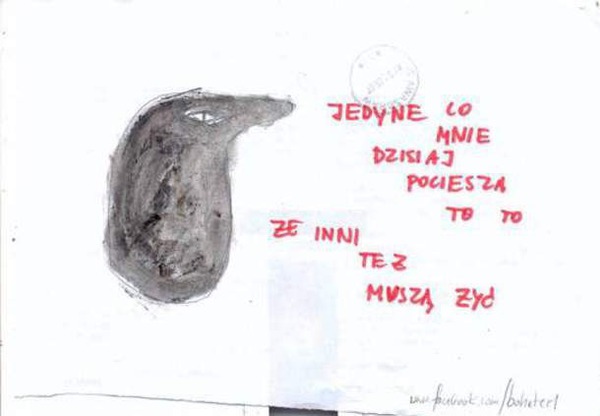 JEDYNE CO
MNIE
DZISIAJ
POCIESZA
TO TO
ZE INNI
TEZ
MUSZĄ ZYĆ
www.facebook.com/bohater1